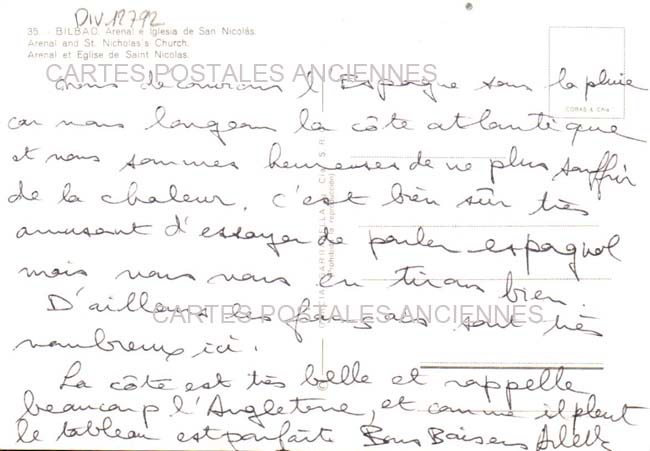 DIV12792
35. - BILBAO. Arenal e Iglesia de San Nicolás.
Arenal and St. Nicholas's Church.
Arenal et Eglise de Saint Nicolas.
CARTES POSTALES ANCIENNES
COBAS &
nous découvrons l'Espagne sous la pluie
car nous longeons la côte atlantique
et nous sommes heureuses de ne plus souffrir
de la chaleur. C'est bien sûr très
amusant d'essayer de parler espagnol
mais nous nous en tirons bien.
D'ailleurs les français sont très
CARTES POSTALES ANCIENNES
nombreux ici.
La côte est très belle et rappelle
beaucoup l'Angleterre, et comme il pleut
le tableau est parfait Bons Baisers Arlette
(Prohibida la reproducción)